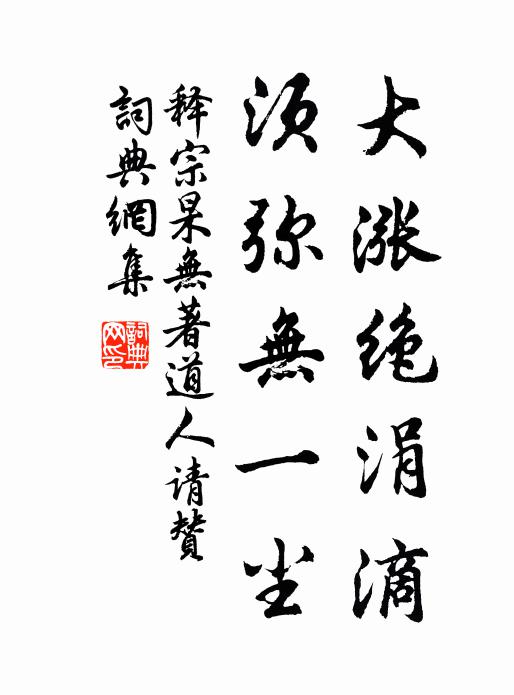 大涨绝涓滴
须弥無一尘
释宗杲無著道人请赞
詞典網集
詞典網印